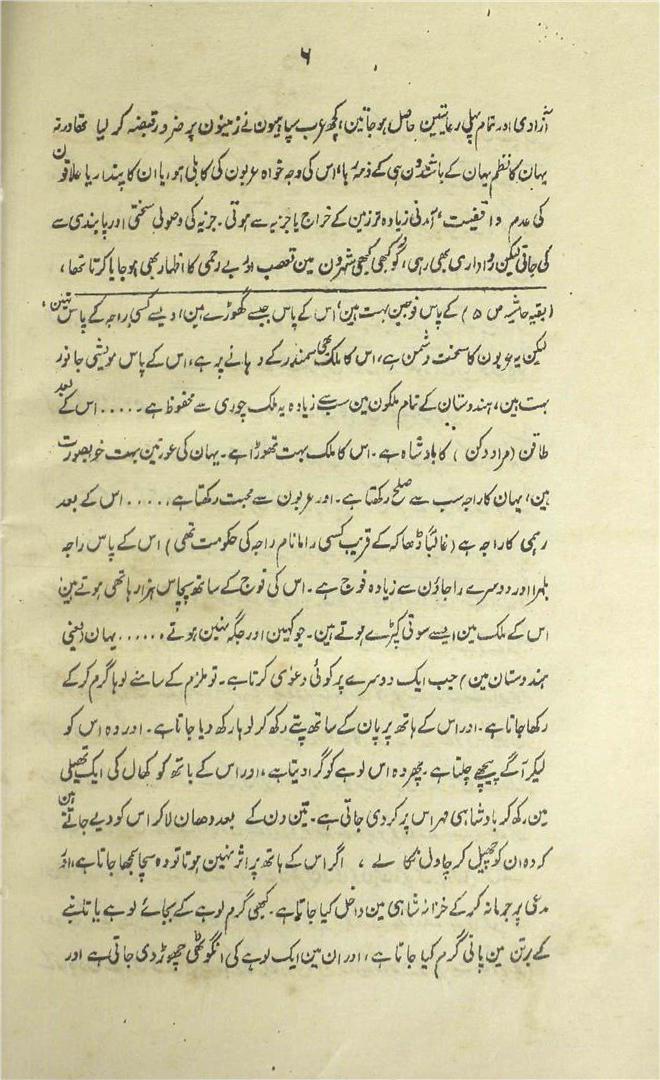 ۶
آزادی اور تمام پہلی رعایتین حاصل ہو جائین، کچھ عرب سپاہیون نے زمینون پر ضرور قبضہ کر لیا تھا ورنہ
یہان کا نظم یہان کے باشندون ہی کے ذمہ رہا، اس کی وجہ خواہ عربون کی کاہلی ہو، یا ان کا پندار یا علاقون
کی عدم واقفیت، آمدنی زیادہ تر زمین کے خراج یا جزیہ سے ہوتی۔ جزیہ کی وصولی سختی اور پابندی سے
کی جاتی لیکن رواداری بھی رہی، گو کبھی کبھی شہرون مین تعصب اور بے رحمی کا اظہار بھی ہو جایا کرتا تھا،
(بقیہ حاشیہ ص ۵) کے پاس فوجین بہت ہین، اس کے پاس جیسے گھوڑے ہین، ویسے کسی راجہ کے پاس نہین،
لیکن یہ عربون کا سخت دشمن ہے، اس کا ملک بھی سمندر کے دہانے پر ہے، اس کے پاس مویشی جانور
بہت ہین، ہندوستان کے تمام ملکون مین سب سے زیادہ یہ ملک چوری سے محفوظ ہے۔.... اس کے بعد
طاقن (مراد دکن) کا بادشاہ ہے۔ اس کا ملک بہت تھوڑا ہے۔ یہان کی عورتین بہت خوبصورت
ہین، یہان کا راجہ سب سے صلح رکھتا ہے۔ اور عربون سے محبت رکھتا ہے،.... اس کے بعد
رہمی کا راجہ ہے (غالباً ڈھاکہ کے قریب کسی راما نام راجہ کی حکومت تھی) اس کے پاس راجہ
بلہرا اور دوسرے راجاؤن سے زیادہ فوج ہے۔ اس کی فوج کے ساتھ پچاس ہزار ہاتھی ہوتے ہین
اس کے ملک مین ایسے سوتی کپڑے ہوتے ہین۔ جو کہین اور جگہ نہین ہوتے،.... یہان (یعنی
ہندوستان مین) جب ایک دوسرے پر کوئی دعویٰ کرتا ہے۔ تو ملزم کے سامنے لوہا گرم کر کے
رکھا جاتا ہے۔ اور اس کے ہاتھ پر پان کے سات پتے رکھ کر لوہا رکھ دیا جاتا ہے۔ اور وہ اس کو
لیکر آگے پیچھے چلتا ہے۔ پھر وہ اس لوہے کو گرا دیتا ہے، اور اس کے ہاتھ کو کھال کی ایک تھیلی
مین رکھ کر بادشاہی مہر اس پر کر دی جاتی ہے۔ تین دن کے بعد دھان لا کر اس کو دیے جاتے ہین
کہ وہ ان کو چھیل کر چاول نکالے، اگر اس کے ہاتھ پر اثر نہین ہوتا تو وہ سچا سمجھا جاتا ہے، اور
مدعی پر جرمانہ کر کے خزانہ شاہی مین داخل کیا جاتا ہے۔ کبھی گرم لوہے کے بجائے لوہے یا تانبے
کے برتن مین پانی گرم کیا جاتا ہے، اور ان مین ایک لوہے کی انگوٹھی چھوڑ دی جاتی ہے اور